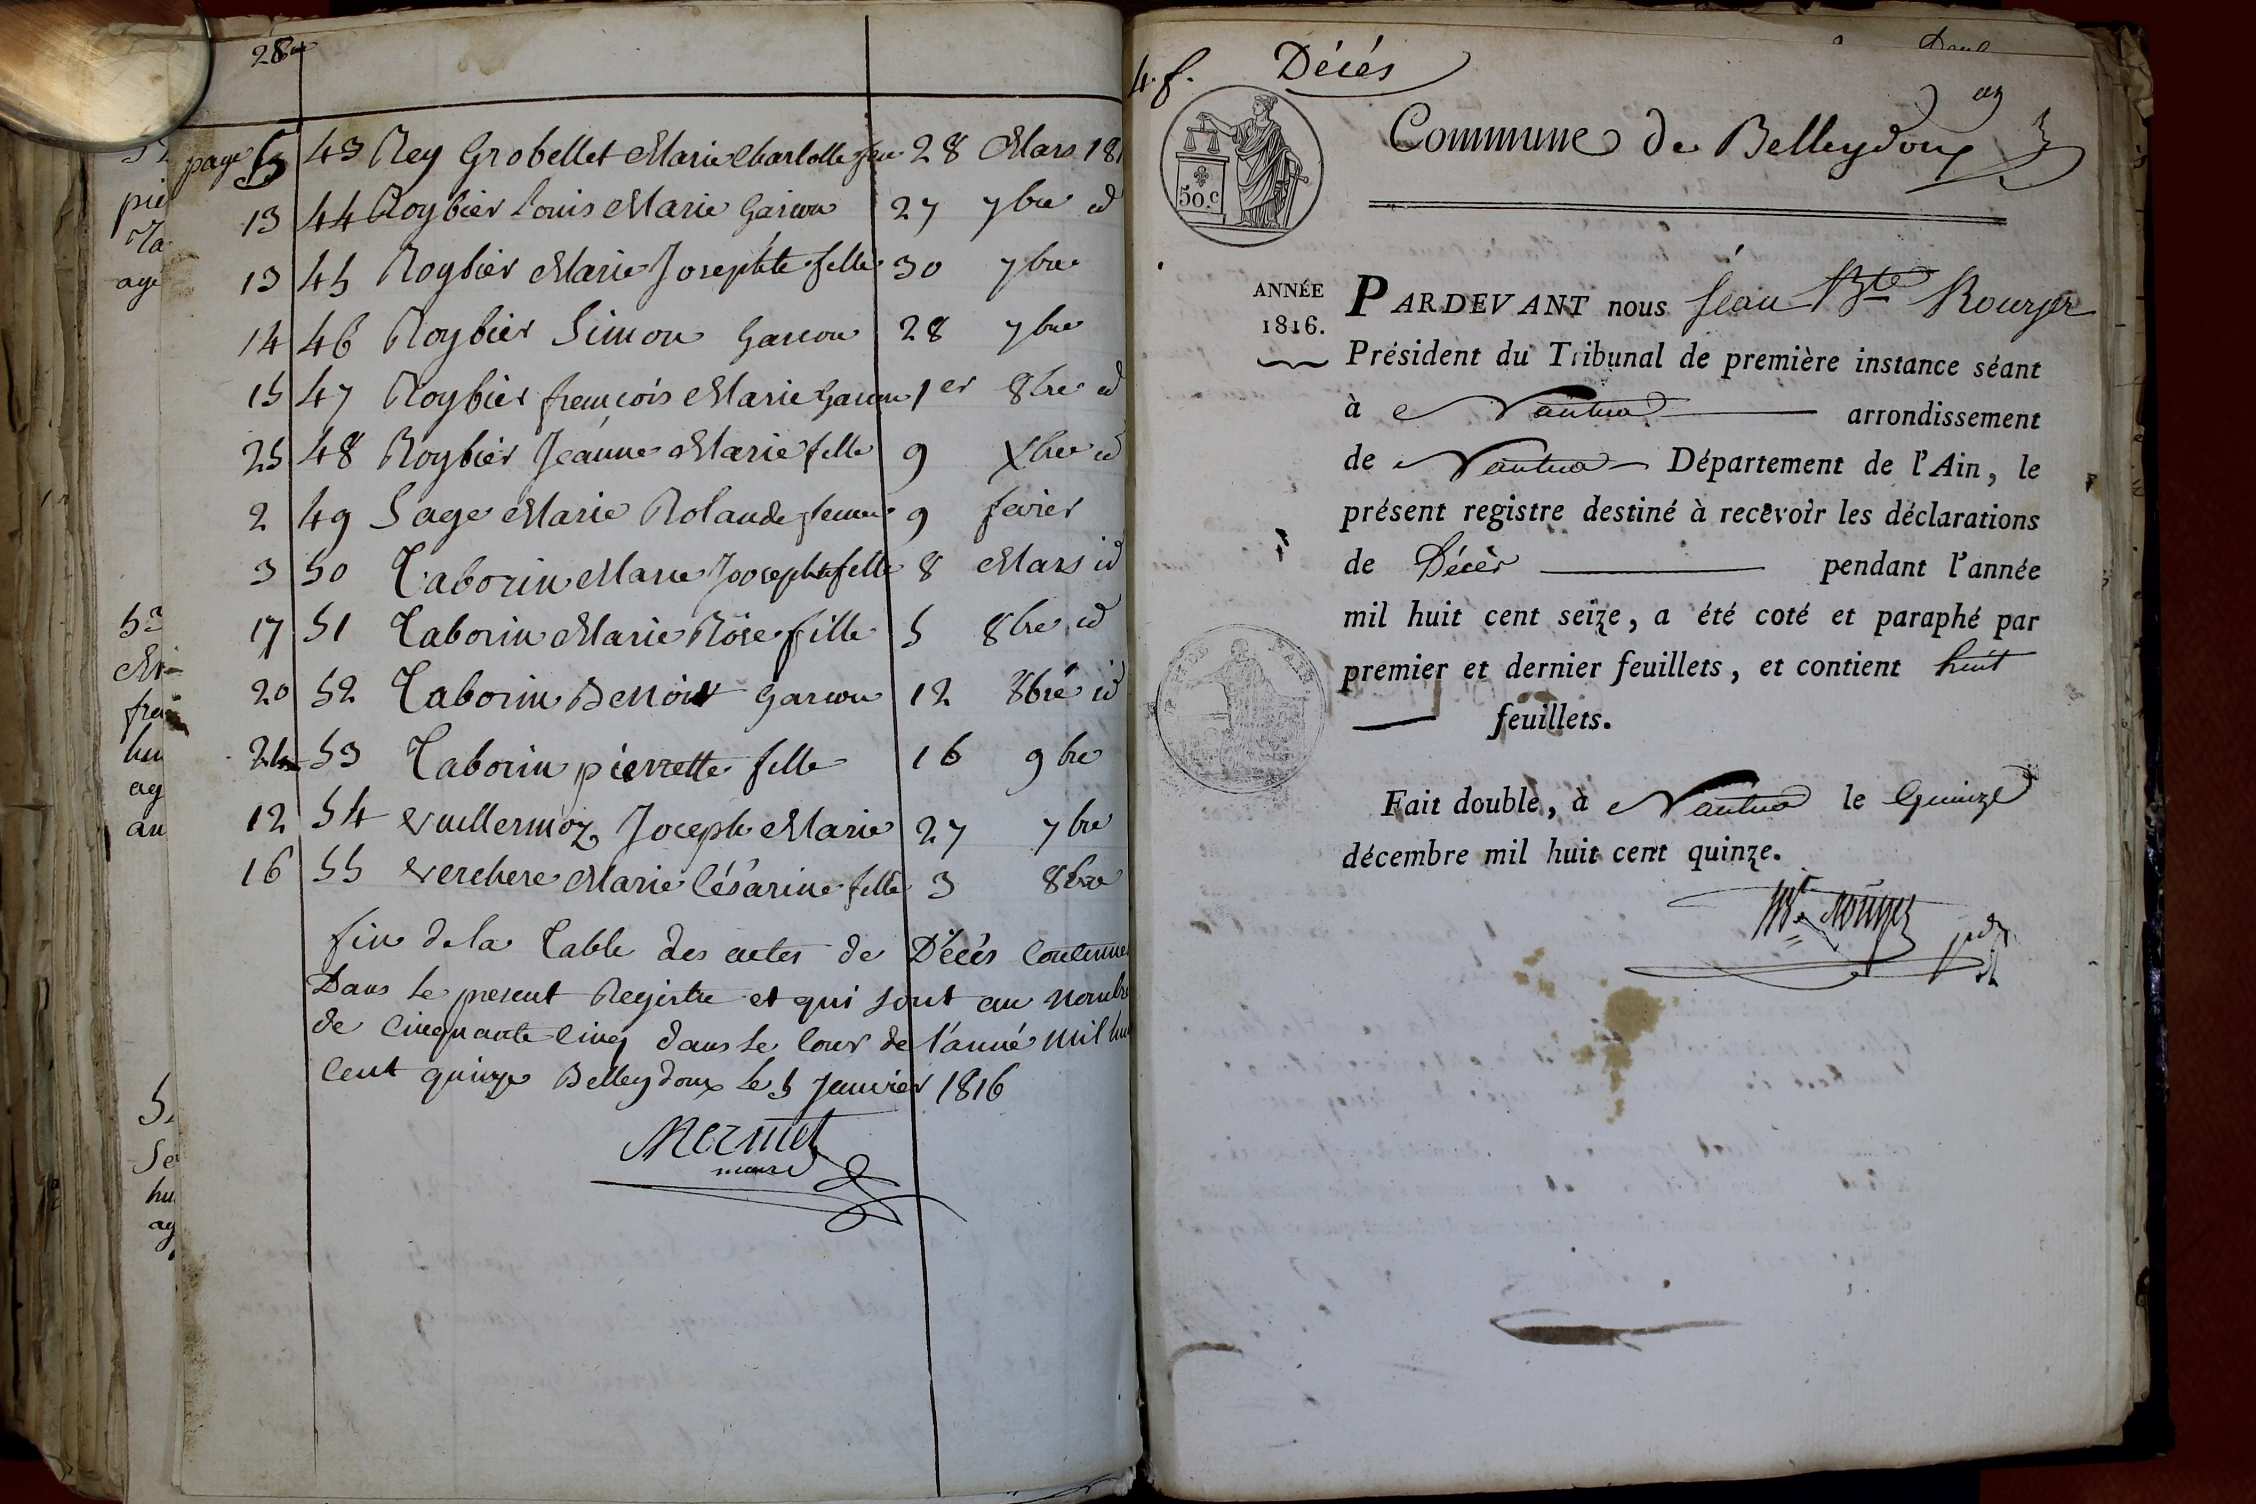 28
page 5 43 Rey Grobellet Marie Charlotte feu 28 Mars 181
13 44 Roybier Louis Marie Garcon 27 7bre id
13 45 Roybier Marie Josephte fille 30 7bre
14 46 Roybier Simon Garcon 28 7bre
15 47 Roybier francois Marie Garcon 1er 8bre id
25 48 Roybier Jeanne Marie fille 9 Xbre id
2 49 Sage Marie Rolande femme 9 fevier
3 50 Taborin Marie Joosephte fille 8 Mars id
17 51 Taborin Marie Rose fille 5 8bre id
20 52 Taborin Benoit Garcon 12 8bre id
24 53 Taborin pierrette fille 16 9bre
12 54 Vuillermoz Joseph Marie 27 7bre
16 55 Verchere Marie Césarine fille 3 8bre
fin de la Table des actes de Décés Contenue
Dans le present Registre et qui sont au nombre
de Cinquante Cinq dans le Cour de l'anné mil hui
Cent quinze Belleydoux le 5 Janvier 1816
Mermet
maire
pie
age
5
hu
ag
4. f. Décés
Commune de Belleydoux
50.c
ANNÉE
1816.
PARDEVANT nous Jean Bte Rouyer
Président du Tribunal de première instance séant
à Nantua arrondissement
de Nantua Département de l'Ain, le
présent registre destiné à recevoir les déclarations
de Décès pendant l'année
mil huit cent seize, a été coté et paraphé par
premier et dernier feuillets, et contient huit
feuillets.
Fait double, à Nantua le Quinze
décembre mil huit cent quinze.
Rouyer